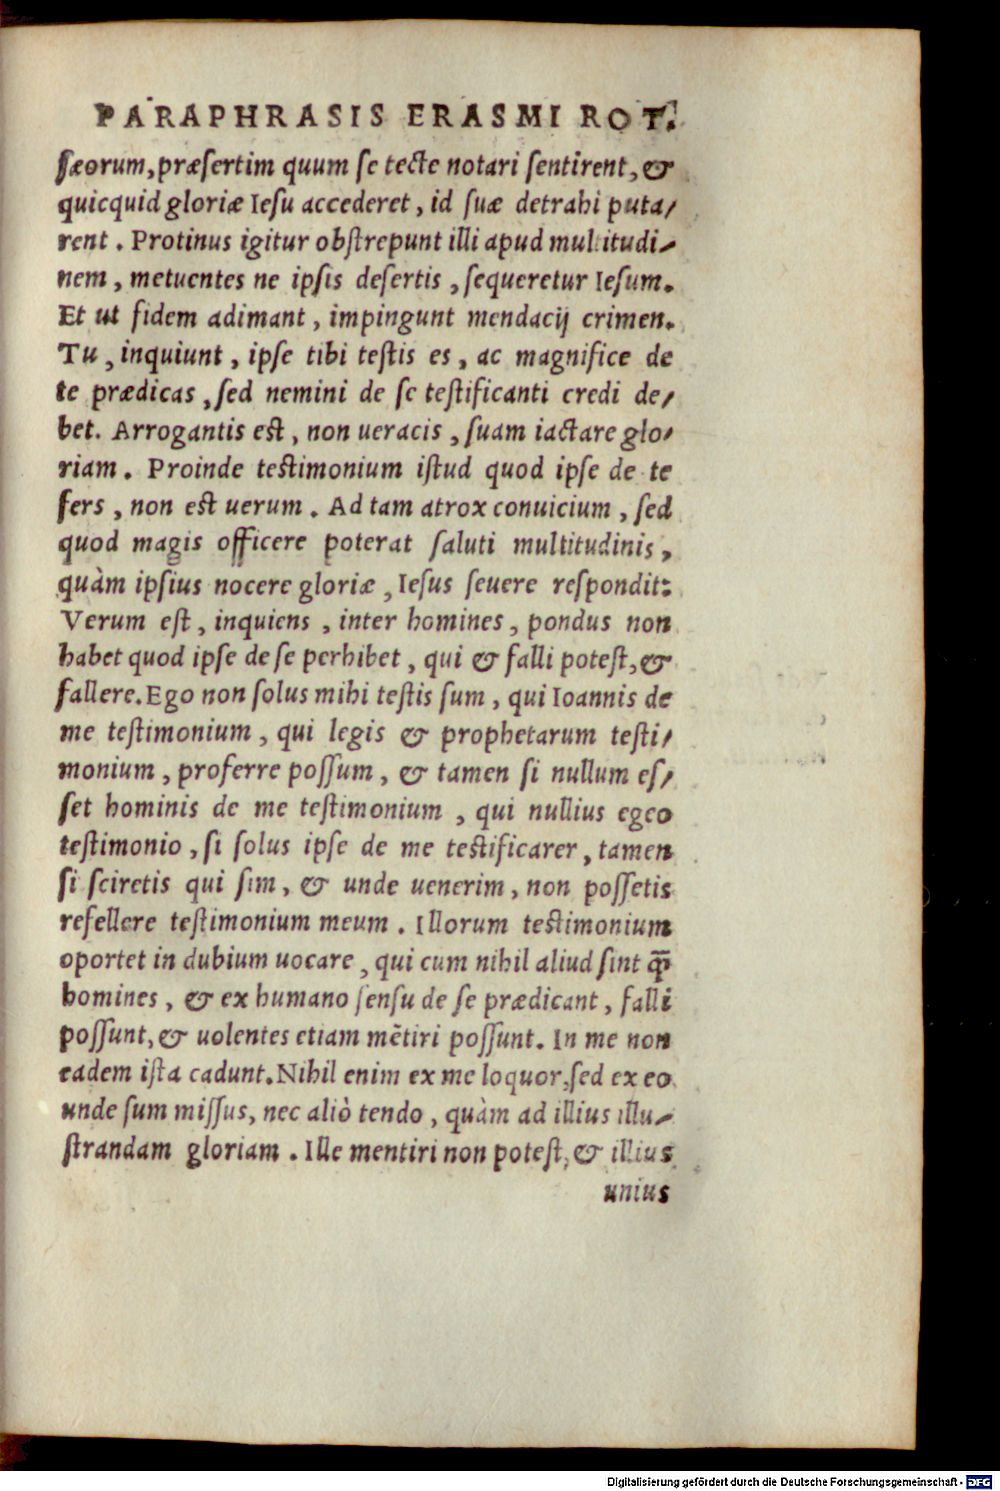 PARAPHRASIS ERASMI ROT.
sæorum, præsertim quum se tecte notari sentirent, &
quicquid gloriæ Iesu accederet, id suæ detrahi puta/
rent. Protinus igitur obstrepunt illi apud multitudi/
nem, metuentes ne ipsis desertis, sequeretur Iesum.
Et ut fidem adimant, impingunt mendacij crimen.
Tu, inquiunt, ipse tibi testis es, ac magnifice de
te prædicas, sed nemini de se testificanti credi de/
bet. Arrogantis est, non ueracis, suam iactare glo/
riam. Proinde testimonium istud quod ipse de te
fers, non est uerum. Ad tam atrox conuicium, sed
quod magis officere poterat saluti multitudinis,
quàm ipsius nocere gloriæ, Iesus seuere respondit:
Verum est, inquiens, inter homines, pondus non
habet quod ipse de se perhibet, qui & falli potest, &
fallere. Ego non solus mihi testis sum, qui Ioannis de
me testimonium, qui legis & prophetarum testi/
monium, proferre possum, & tamen si nullum es/
set hominis de me testimonium, qui nullius egeo
testimonio, si solus ipse de me testificarer, tamen
si sciretis qui sim, & unde uenerim, non possetis
refellere testimonium meum. Illorum testimonium
oportet in dubium uocare, qui cum nihil aliud sint q̄
homines, & ex humano sensu de se prædicant, falli
possunt, & uolentes etiam mẽtiri possunt. In me non
eadem ista cadunt. Nihil enim ex me loquor, sed ex eo
unde sum missus, nec aliò tendo, quàm ad illius illu/
strandam gloriam. Ille mentiri non potest, & illius
unius
Digitalisierung gefördert durch die Deutsche Forschungsgemeinschaft - DFG